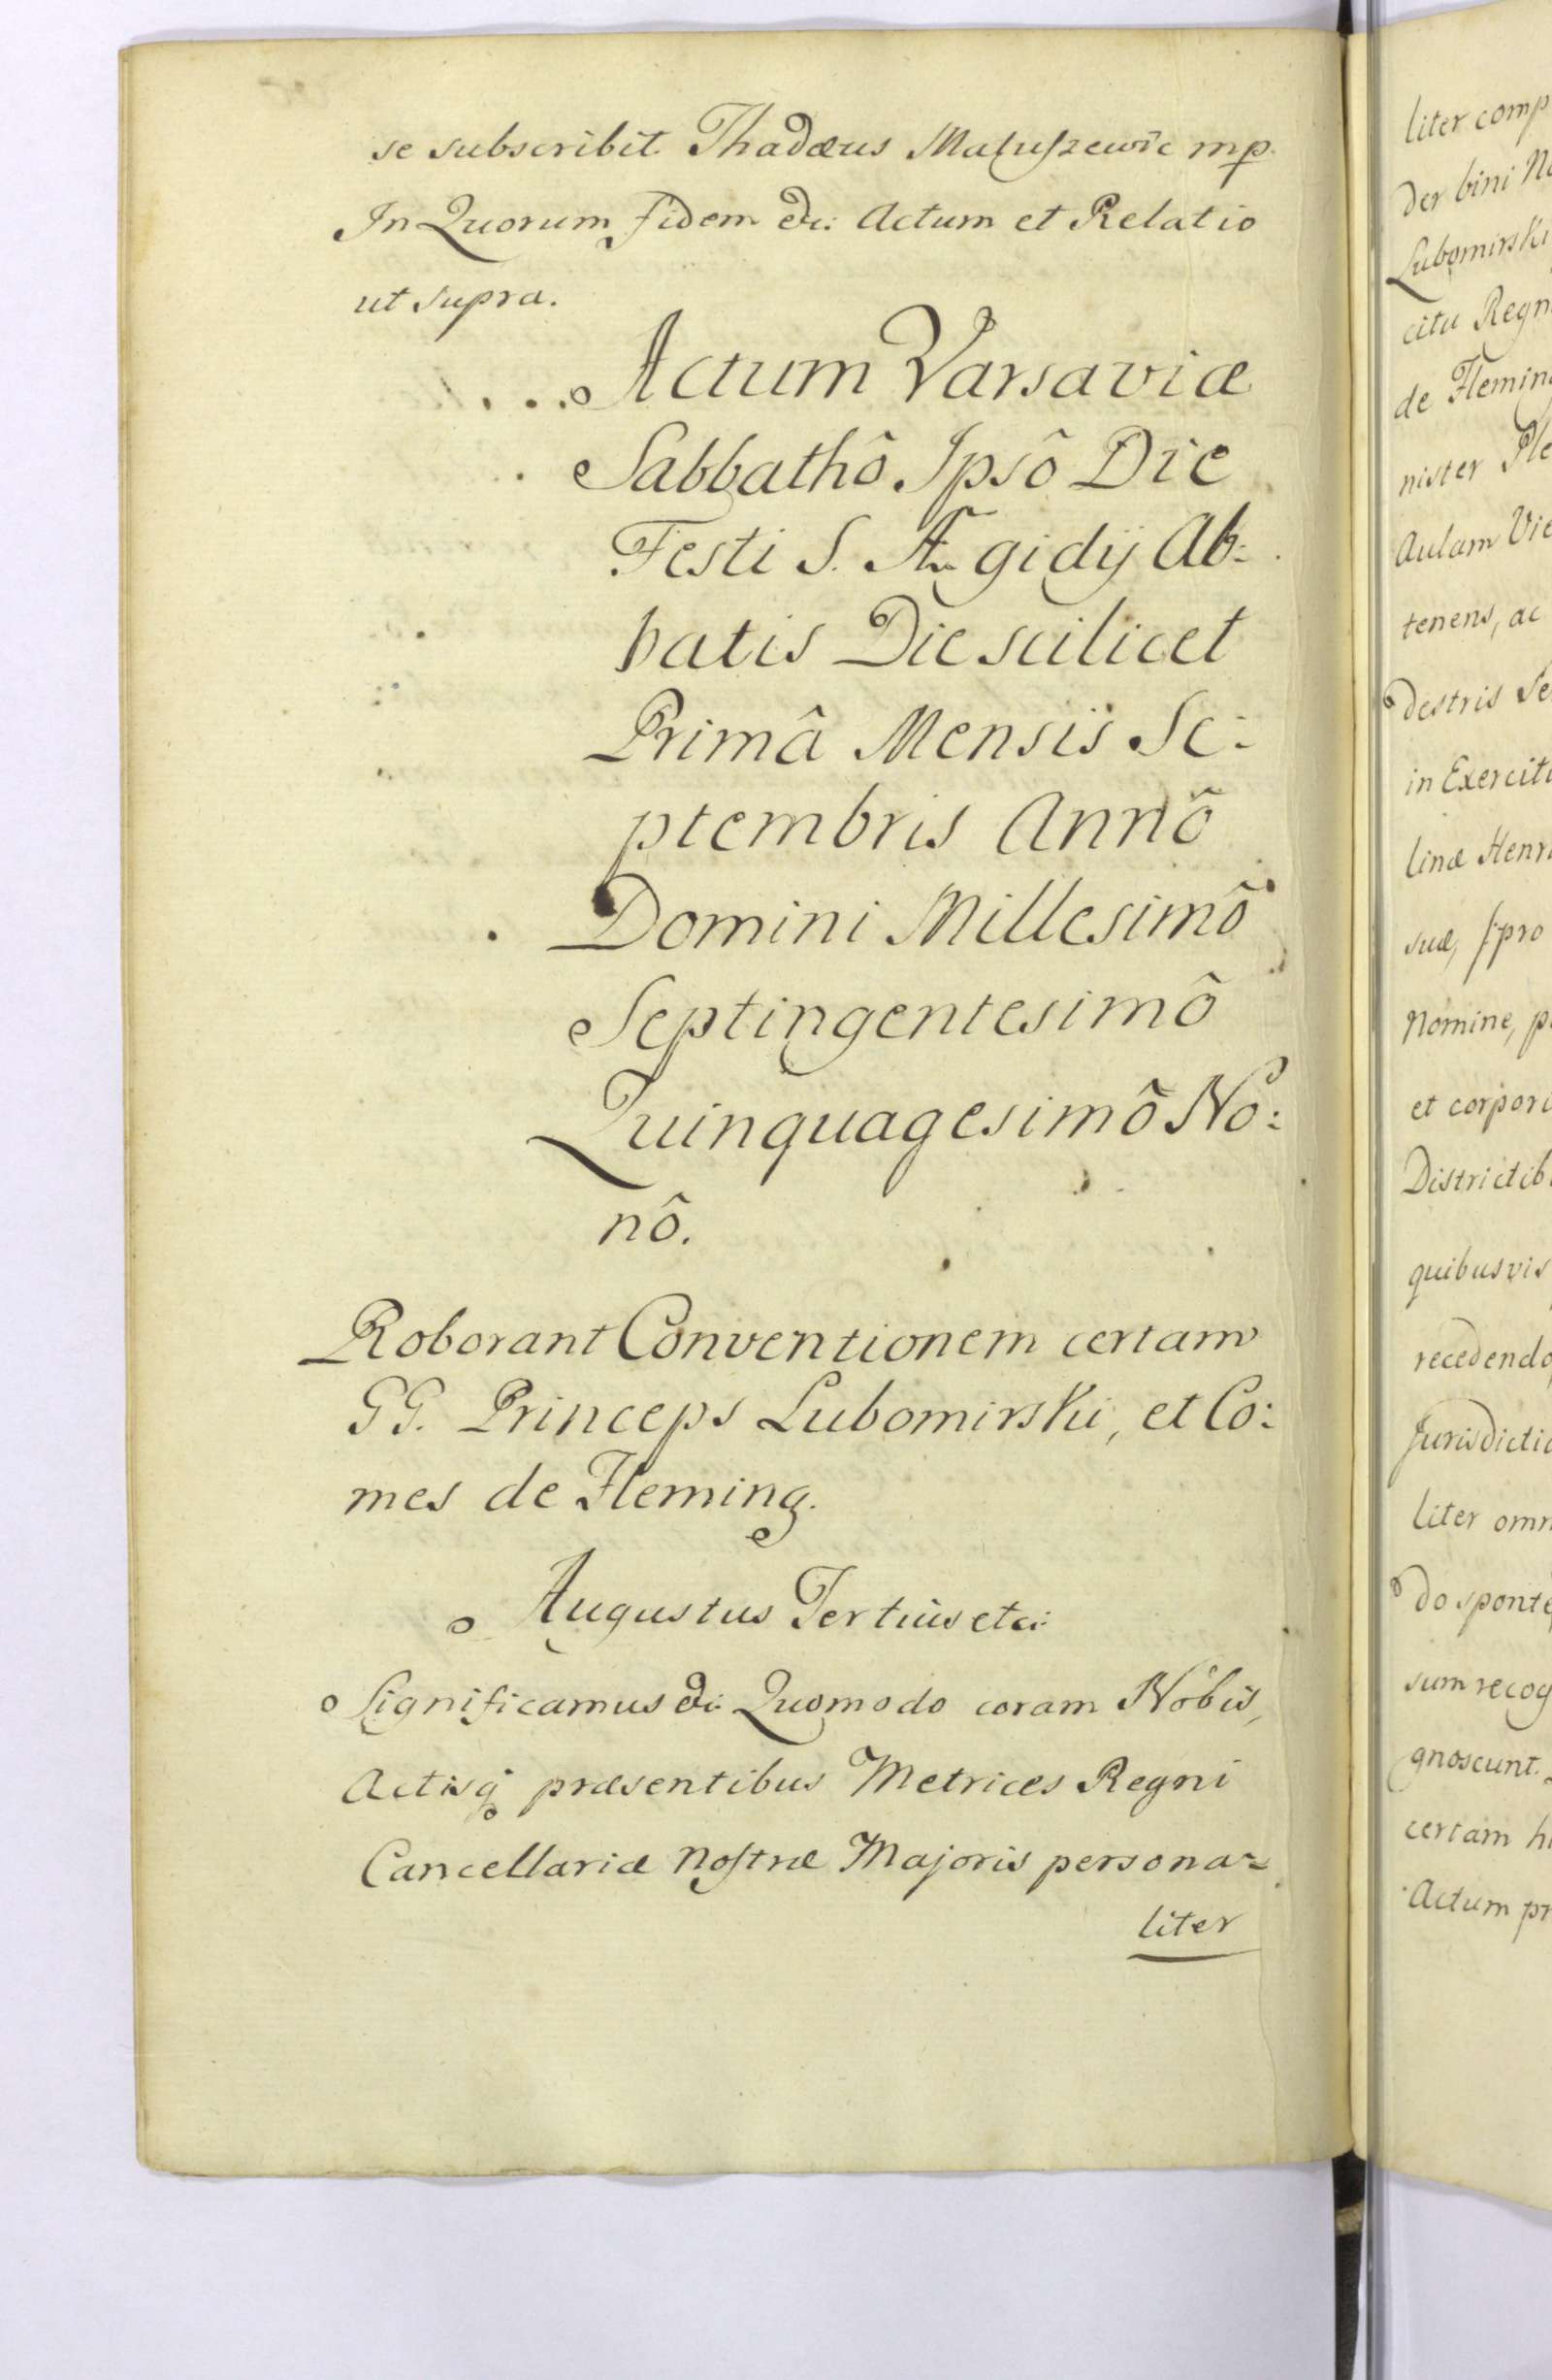 se subscribit Thadæus Matuszewic mp.
In Quorum fidem etc: Actum et Relatio
ut supra.
Actum Varsaviæ
Sabbathô Ipsô Die
Festi S. Ægidij Ab:
batis Die scilicet
Primâ Mensis Se:
ptembris Annô
Domini Millesimô
Septingentesimô
Quinquagesimô No:
nô.
Roborant Conventionem certam
GG. Princeps Lubomirski, et Co:
mes de Fleming.
Augustus Tertius etc:
Significamus etc: Quomodo coram Nobis,
Actisq præsentibus Metrices Regni
Cancellariæ Nostræ Majoris persona=
liter
liter comp
der bini No
Lubomirski
citu Regn
de Fleming
nister Ple
Aulam Vie
tenens, ac
destris Se
in Exercitu
linæ Henri
suæ, pro
Nomine, p
et corpori
Districtib
quibusvis
recedendo
Jurisdictio
liter omn
do sponte
sum recog
gnoscunt.
certam h
Actum pr